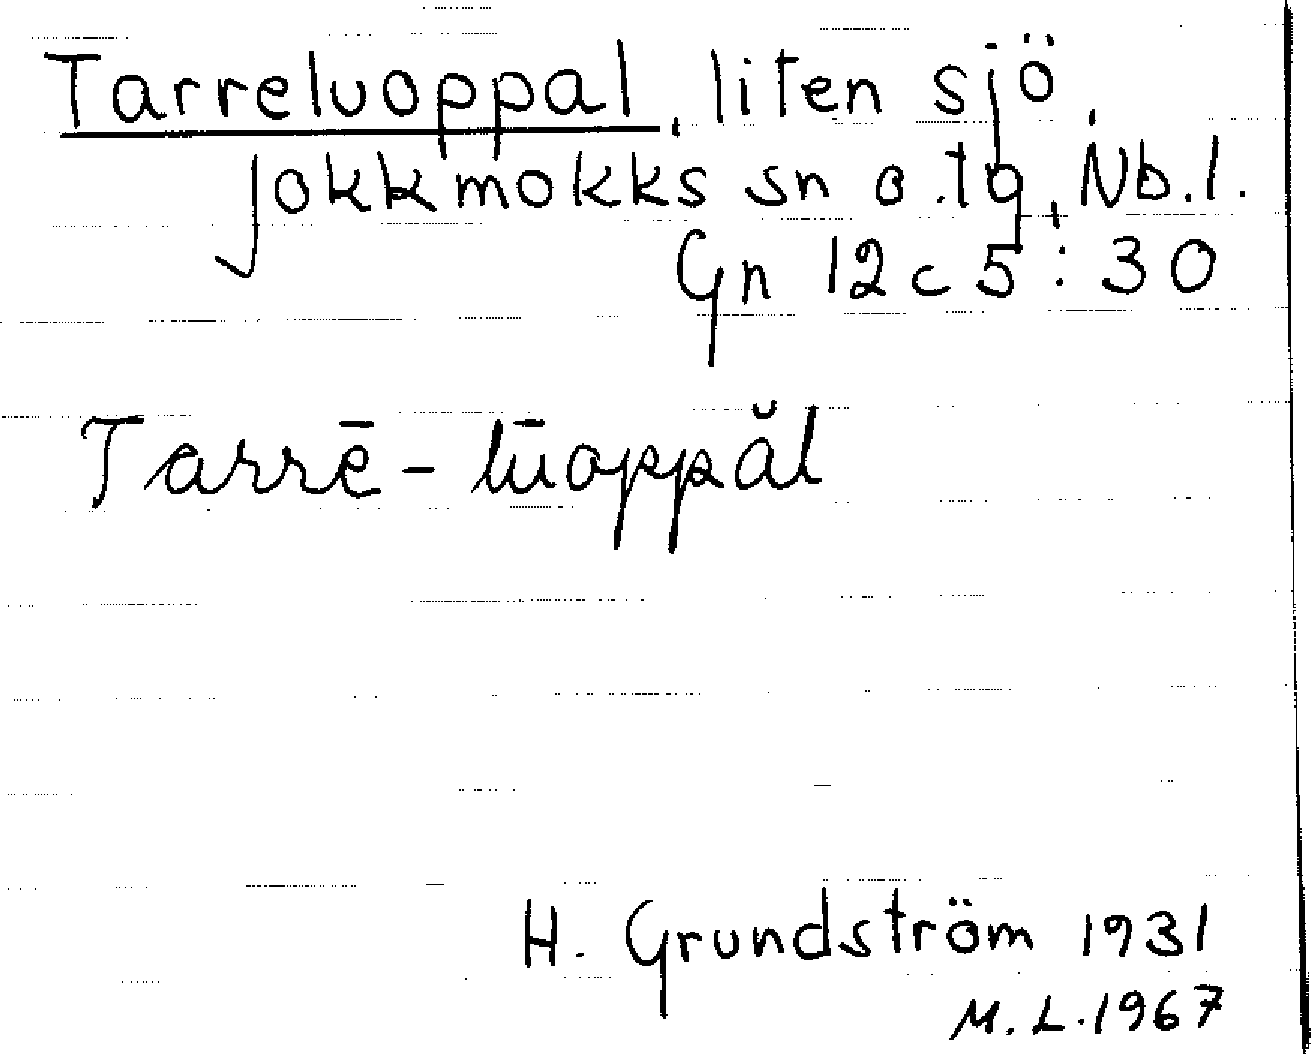 Tarreluoppal, liten sjö,
Jokkmokks sn o. tg, Nb.l.
Gn 12 c 5 : 30
Tarrē-lūoppăl
H. Grundström 1931
M.L. 1967